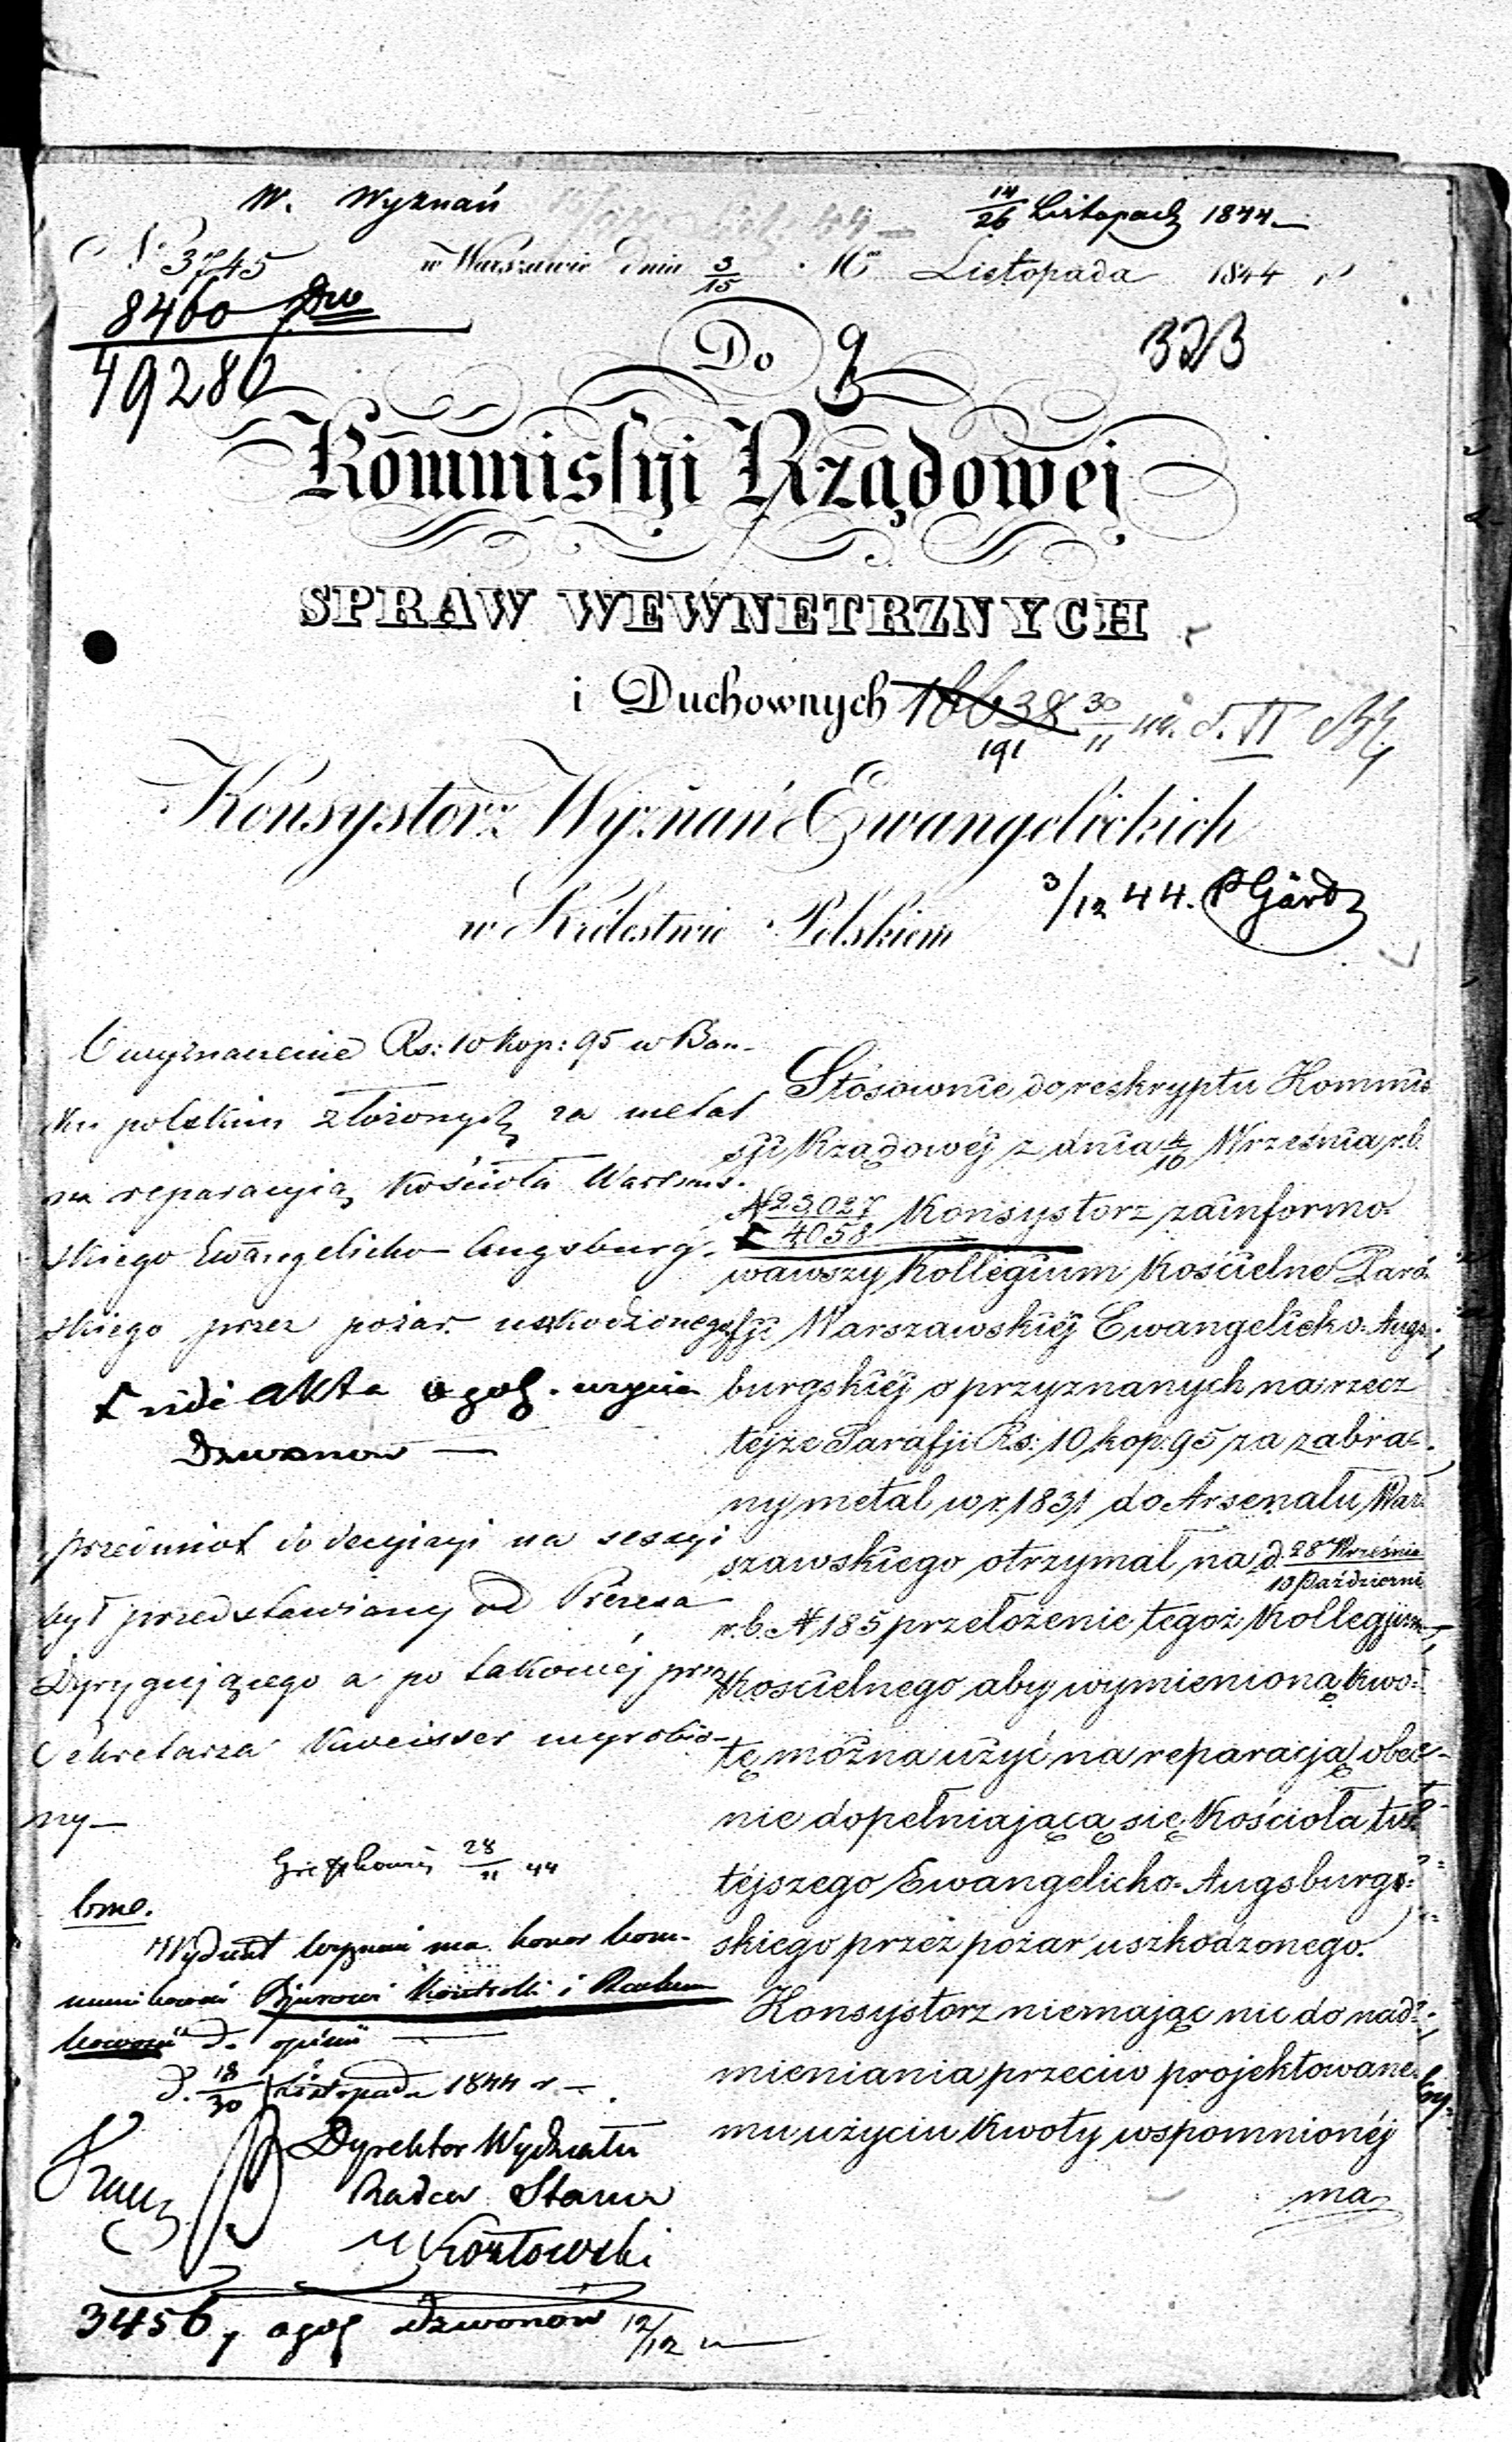 W. Wyznań
14/26 Listopada 1844
No 3745
w Warszawie dnia 3/15 Mca Listopada 1844 r
8460
49286
323
Do
Kommissyi Rządowej
SPRAW WEWNETRZNYCH
i Duchownych
16638 30/11
191
Konsystorz Wyznań Ewangelickich
w Królestwie Polskiem
3/12 44.
O wyznaczenie Rs: 10 kop: 95 w Ban-
ku polskim złożonych za metal
na reparacyią kościoła Warszaw-
skiego Ewangelicko Augsburg-
skiego przez pożar uszkodzonego
vide akta ogol. użycia
Dzwonow —
przedmiot do decyzyi na sessyi
był przedstawiony od Prezesa
Dyrygującego a po takowéj przez
Sekretarza wyrobio-
ny —
28/11 44
Wydział Wyznań ma honor kom-
munikować Bjurowi Kontrolli i Rachun
kowości do opinii
d. 18/30 Listopada 1844 r —
Dyrektor Wydziału
Radca Stanu
Kozłowski
3456, ogol Dzwonów 12/12
Stosownie do reskryptu Kommis
sji Rządowéj z dnia 4/16 Września r. b.
N 23,027/4058 Konsystorz zainformo-
wawszy Kollegium Kościelne Para-
fji Warszawskiéj Ewangelicko-Augs-
burgskiéj o przyznanych na rzecz
tejże Parafji Rs: 10 kop: 95 za zabra-
ny metal w r. 1831 do Arsenału War-
szawskiego otrzymał na d. 28 Września/10 Październi
r. b. N 185 przełożenie tegoż Kollegjum
Kościelnego aby wymienioną kwo-
tę można użyć na reparacją obec-
nie dopełniającą się Kościoła tu-
téjszego Ewangelicko-Augsburg-
skiego przez pożar uszkodzonego.
Konsystorz niemając nic do nad-
mieniania przeciw projektowane-
mu użyciu kwoty wspomnionéj
ma